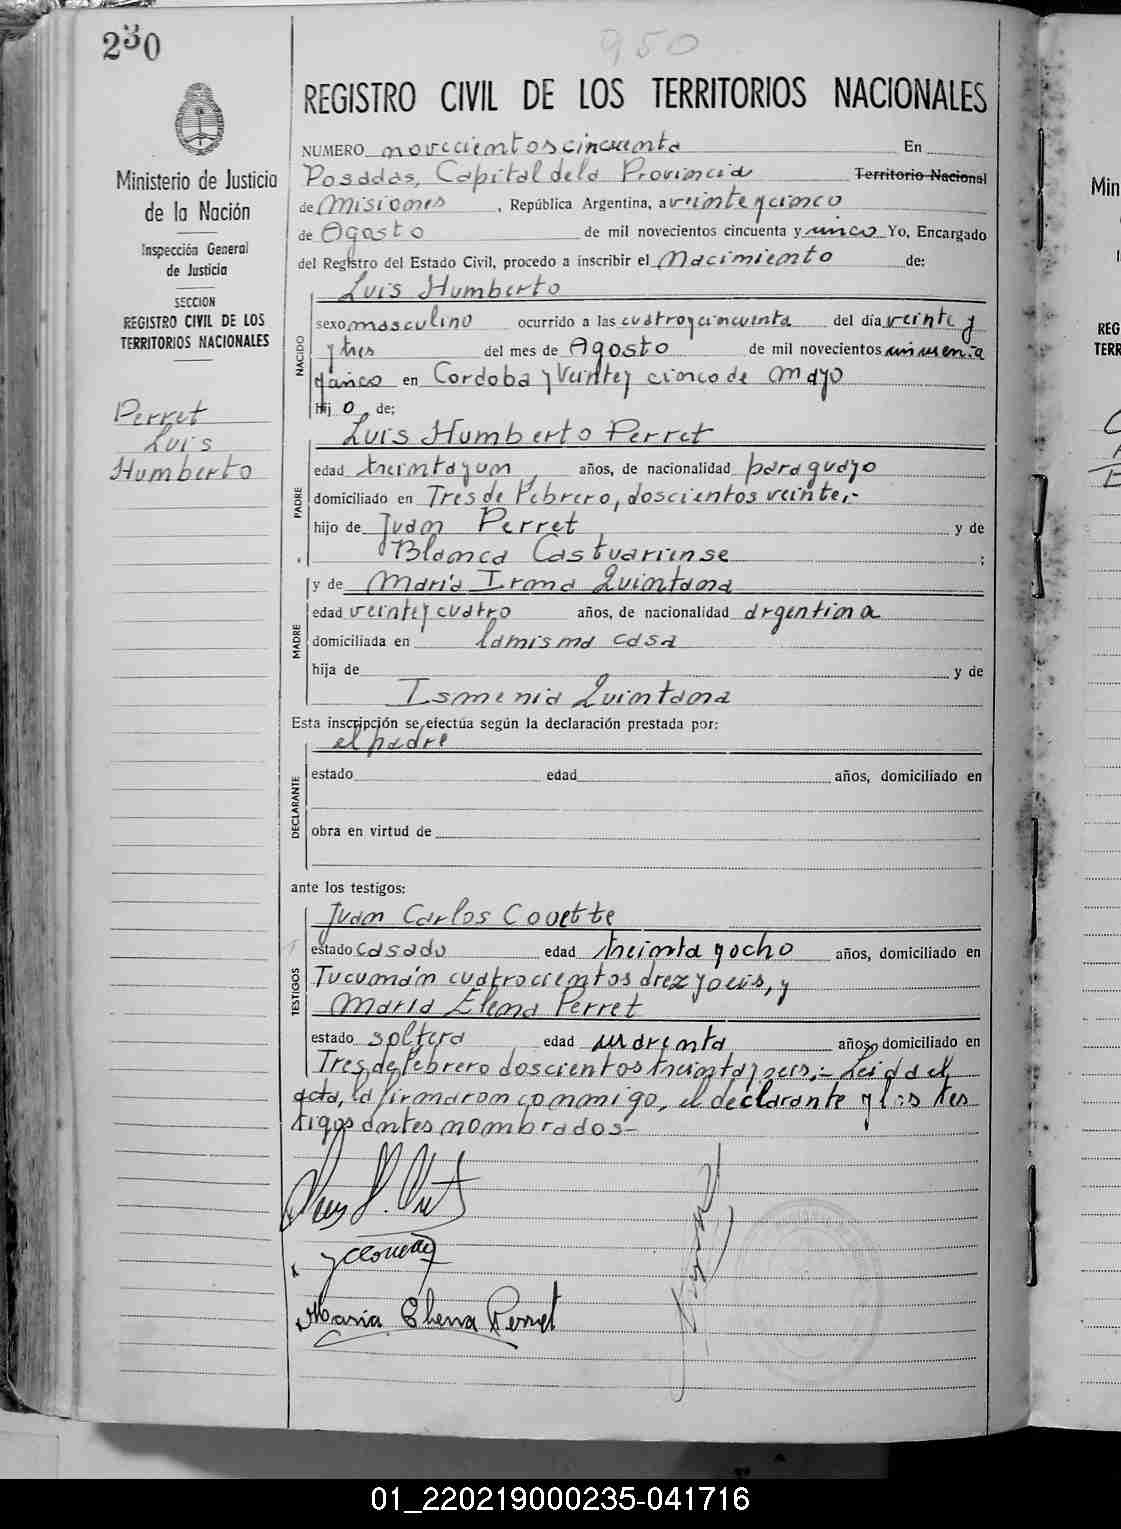 230
950
Ministerio de Justicia
de la Nación
Inspección General
de Justicia
SECCION
REGISTRO CIVIL DE LOS
TERRITORIOS NACIONALES
Perret
Luis
Humberto
REGISTRO CIVIL DE LOS TERRITORIOS NACIONALES
NUMERO novecientos cincuenta En
Posadas, Capital de la Provincia Territorio Nacional
de Misiones, República Argentina, a veinte y cinco
de Agosto de mil novecientos cincuenta y cinco Yo, Encargado
del Registro del Estado Civil, procedo a inscribir el Nacimiento de:
Luis Humberto
NACIDO
sexo masculino ocurrido a las cuatro y cincuenta del día veinte y
y tres del mes de Agosto de mil novecientos cincuenta
y cinco en Cordoba y Veinte y cinco de Mayo
hijo de:
Luis Humberto Perret
PADRE
edad treinta y un, años, de nacionalidad paraguayo
domiciliado en Tres de Febrero, doscientos veinte.-
hijo de Juan Perret y de
Blanca Castuariense ;
y de María Irma Quintana
MADRE
edad veinte y cuatro años, de nacionalidad argentina
domiciliada en la misma casa
hija de y de
Ismenia Quintana
Esta inscripción se efectúa según la declaración prestada por:
el padre
DECLARANTE
estado edad años, domiciliado en
obra en virtud de
ante los testigos:
Juan Carlos Couette
TESTIGOS
estado casado edad treinta y ocho años, domiciliado en
Tucumán cuatrocientos diez y seis, y
María Elena Perret
estado soltera edad cuarenta años, domiciliado en
Tres de Febrero doscientos treinta y seis.- Leida el
acta, la firmaron conmigo, el declarante y los tes
tigos antes nombrados-
Maria Elena Perret
Min
REG
TERR
01_220219000235-041716